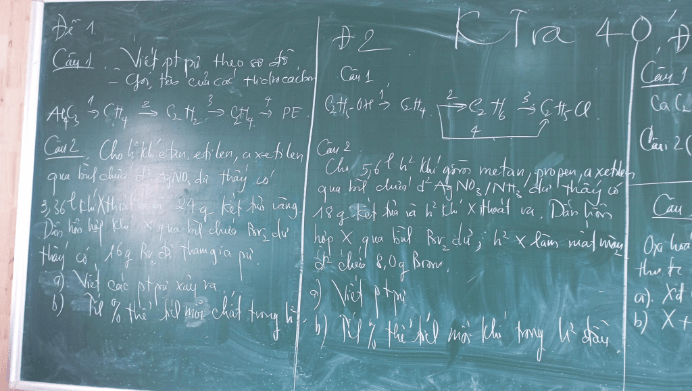 Đề 1.
Câu 1. Viết pt pứ theo sơ đồ
- Gọi tên của các hidrocacbon
Al₄C₃ 1→ CH₄ 2→ C₂H₂ 3→ C₂H₄ 4→ PE.
Câu 2 Cho h² khí etan, etilen, axetilen
qua bình chứa d² AgNO₃ dư thấy có
3,36 l khí X thoát ra 24g kết tủa vàng
Dẫn hỗn hợp khí X qua bình chứa Br₂ dư
thấy có 16g Br₂ đã tham gia pứ.
a) Viết các pt pứ xảy ra
b) % thể mỗi chất trong h²
Đ 2
Câu 1
C₂H₅-OH 1→ C₂H₄ 2→ C₂H₆ 3→ C₂H₅-Cl
4
Câu 2
Cho 5,6 l h² khí gồm metan, propen, axetilen
qua bình chứa d² AgNO₃/NH₃ dư thấy có
18g kết tủa và h² khí X thoát ra. Dẫn hỗn
hợp X qua bình Br₂ dư, h² X làm mất màu
d² chứa 8,0g Brom.
a) Viết pt pứ
b) % thể mỗi khí trong h² đầu.
K Tra 40'
Đ
Câu 1
Câu 2
Câu
Oxi hoá
a). Xđ
b) X +